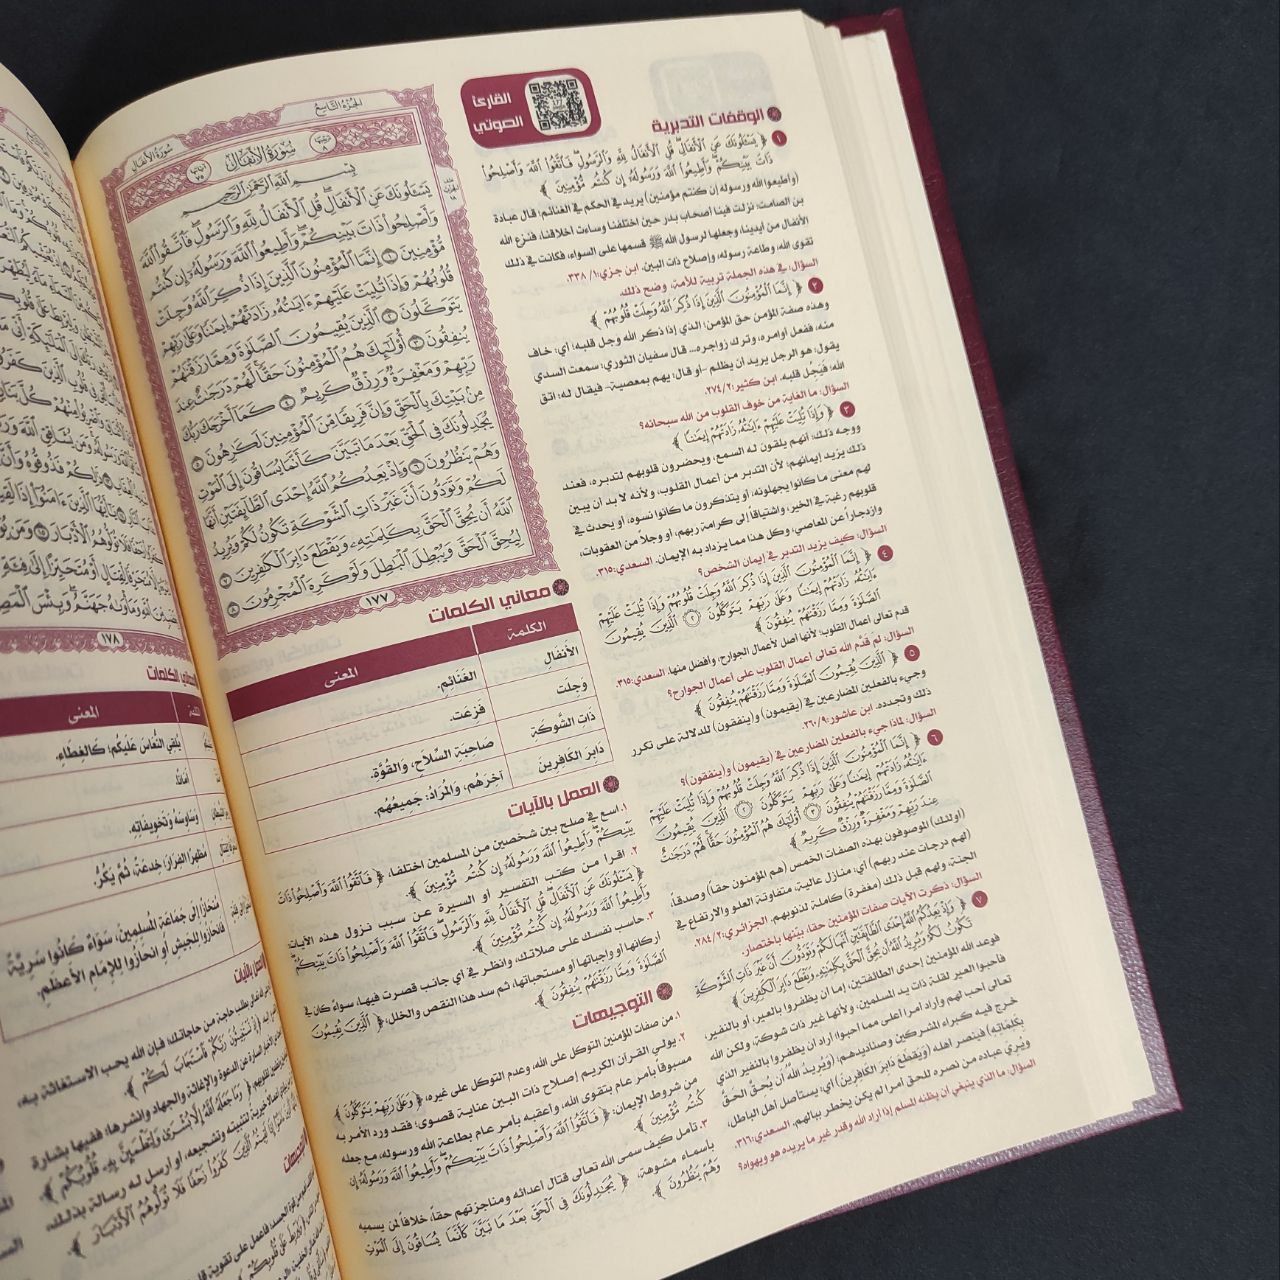 الجزء التاسع
سورة الأنفال
القارئ
الصوتي
سورة الأنفال
بسم الله الرحمن الرحيم
يسألونك عن الأنفال قل الأنفال لله والرسول فاتقوا الله
وأصلحوا ذات بينكم وأطيعوا الله ورسوله إن كنتم
مؤمنين ١ إنما المؤمنون الذين إذا ذكر الله وجلت
قلوبهم وإذا تليت عليهم ءايته زادتهم إيمنا وعلى ربهم
يتوكلون ٢ الذين يقيمون الصلوة ومما رزقنهم
ينفقون ٣ أولئك هم المؤمنون حقا لهم درجت عند
ربهم ومغفرة ورزق كريم ٤ كما أخرجك ربك
من بيتك بالحق وإن فريقا من المؤمنين لكرهون ٥
يجدلونك في الحق بعد ما تبين كأنما يساقون إلى الموت
وهم ينظرون ٦ وإذ يعدكم الله إحدى الطائفتين أنها
لكم وتودون أن غير ذات الشوكة تكون لكم ويريد
الله أن يحق الحق بكلمته ويقطع دابر الكفرين ٧
ليحق الحق ويبطل البطل ولو كره المجرمون ٨
١٧٧
معاني الكلمات
الكلمة المعنى
الأنفال الغنائم.
وجلت فزعت.
ذات الشوكة صاحبة السلاح، والقوة.
دابر الكافرين آخرهم، والمراد: جميعهم.
العمل بالآيات
١. اسع في صلح بين شخصين من المسلمين اختلفا، ﴿ فاتقوا الله وأصلحوا ذات
بينكم وأطيعوا الله ورسوله إن كنتم مؤمنين ﴾
٢. اقرأ من كتب التفسير أو السيرة عن سبب نزول هذه الآيات:
﴿ يسألونك عن الأنفال قل الأنفال لله والرسول فاتقوا الله وأصلحوا ذات بينكم
وأطيعوا الله ورسوله إن كنتم مؤمنين ﴾.
٣. حاسب نفسك على صلاتك، وانظر في أي جانب قصرت فيها، سواء كان في
أركانها أو واجباتها أو مستحباتها، ثم سد هذا النقص والخلل، ﴿ الذين يقيمون
الصلوة ومما رزقنهم ينفقون ﴾.
التوجيهات
١. من صفات المؤمنين التوكل على الله، وعدم التوكل على غيره، ﴿ وعلى ربهم يتوكلون ﴾
٢. يولي القرآن الكريم إصلاح ذات البين عناية قصوى؛ فقد ورد الأمر به
مسبوقا بأمر عام بتقوى الله، وأعقبه بأمر عام بطاعة الله ورسوله، مع جعله
من شروط الإيمان: ﴿ فاتقوا الله وأصلحوا ذات بينكم وأطيعوا الله ورسوله إن
كنتم مؤمنين ﴾
٣. تأمل كيف سمى الله تعالى قتال أعدائه ومناجزتهم حقا، خلافا لمن يسميه
بأسماء مشوهة، ﴿ يجدلونك في الحق بعد ما تبين كأنما يساقون إلى الموت
وهم ينظرون ﴾
الوقفات التدبرية
١ ﴿ يسألونك عن الأنفال قل الأنفال لله والرسول فاتقوا الله وأصلحوا
ذات بينكم وأطيعوا الله ورسوله إن كنتم مؤمنين ﴾
(وأطيعوا الله ورسوله إن كنتم مؤمنين) يريد في الحكم في الغنائم؛ قال عبادة
بن الصامت: نزلت فينا أصحاب بدر حين اختلفنا وساءت أخلاقنا، فنزع الله
الأنفال من أيدينا، وجعلها لرسول الله ﷺ قسمها على السواء، فكانت في ذلك
تقوى الله، وطاعة رسوله، وإصلاح ذات البين. ابن جزي: ٣٣٨/١.
السؤال: في هذه الجملة تربية للأمة، وضح ذلك.
٢ ﴿ إنما المؤمنون الذين إذا ذكر الله وجلت قلوبهم ﴾
وهذه صفة المؤمن حق المؤمن؛ الذي إذا ذكر الله وجل قلبه؛ أي: خاف
منه، ففعل أوامره، وترك زواجره... قال سفيان الثوري: سمعت السدي
يقول: هو الرجل يريد أن يظلم -أو قال: يهم بمعصية- فيقال له: اتق
الله، فيجل قلبه. ابن كثير: ٢٧٤/٢.
السؤال: ما الغاية من خوف القلوب من الله سبحانه؟
٣ ﴿ وإذا تليت عليهم ءايته زادتهم إيمنا ﴾
ووجه ذلك: أنهم يلقون له السمع، ويحضرون قلوبهم لتدبره، فعند
ذلك يزيد إيمانهم؛ لأن التدبر من أعمال القلوب، ولأنه لا بد أن يبين
لهم معنى ما كانوا يجهلونه، أو يتذكرون ما كانوا نسوه، أو يحدث في
قلوبهم رغبة في الخير، واشتياقا إلى كرامة ربهم، أو وجلا من العقوبات،
وازدجارا عن المعاصي، وكل هذا مما يزداد به الإيمان. السعدي: ٣١٥.
السؤال: كيف يزيد التدبر في إيمان الشخص؟
٤ ﴿ إنما المؤمنون الذين إذا ذكر الله وجلت قلوبهم وإذا تليت عليهم
ءايته زادتهم إيمنا وعلى ربهم يتوكلون ٢ الذين يقيمون
الصلوة ومما رزقنهم ينفقون ﴾
قدم تعالى أعمال القلوب؛ لأنها أصل لأعمال الجوارح، وأفضل منها. السعدي: ٣١٥.
السؤال: لم قدم الله تعالى أعمال القلوب على أعمال الجوارح؟
٥ ﴿ الذين يقيمون الصلوة ومما رزقنهم ينفقون ﴾
وجيء بالفعلين المضارعين في (يقيمون) و(ينفقون) للدلالة على تكرر
ذلك وتجدده. ابن عاشور: ٢٦٠/٩.
السؤال: لماذا جيء بالفعلين المضارعين في (يقيمون) و(ينفقون)؟
٦ ﴿ إنما المؤمنون الذين إذا ذكر الله وجلت قلوبهم وإذا تليت عليهم
ءايته زادتهم إيمنا وعلى ربهم يتوكلون ٢ الذين يقيمون
الصلوة ومما رزقنهم ينفقون ٣ أولئك هم المؤمنون حقا لهم درجت
عند ربهم ومغفرة ورزق كريم ﴾
(أولئك) الموصوفون بهذه الصفات الخمس (هم المؤمنون حقا) وصدقا،
(لهم درجات عند ربهم) أي: منازل عالية، متفاوتة العلو والارتفاع في
الجنة، ولهم قبل ذلك (مغفرة) كاملة لذنوبهم. الجزائري: ٢٨٤/٢.
السؤال: ذكرت الآيات صفات المؤمنين حقا، بينها باختصار.
٧ ﴿ وإذ يعدكم الله إحدى الطائفتين أنها لكم وتودون أن غير ذات الشوكة
تكون لكم ويريد الله أن يحق الحق بكلمته ويقطع دابر الكفرين ﴾
فوعد الله المؤمنين إحدى الطائفتين، إما أن يظفروا بالعير، أو بالنفير،
فأحبوا العير لقلة ذات يد المسلمين، ولأنها غير ذات شوكة، ولكن الله
تعالى أحب لهم وأراد أمرا أعلى مما أحبوا؛ أراد أن يظفروا بالنفير الذي
خرج فيه كبراء المشركين وصناديدهم؛ (ويريد الله أن يحق الحق
بكلماته) فينصر أهله (ويقطع دابر الكافرين) أي: يستأصل أهل الباطل،
ويري عباده من نصره للحق أمرا لم يكن يخطر ببالهم. السعدي: ٣١٦.
السؤال: ما الذي ينبغي أن يظنه المسلم إذا أراد الله وقدر غير ما يريده هو ويهواه؟
١٧٨
معاني الكلمات
المعنى
يلقي النعاس عليكم؛ كالغطاء.
أمانا.
وساوسه وتخويفاته.
مظهرا الفرار؛ خدعة، ثم يكر.
منحازا إلى جماعة المسلمين، سواء كانوا سرية
فانحازوا للجيش أو انحازوا للإمام الأعظم.
العمل بالآيات